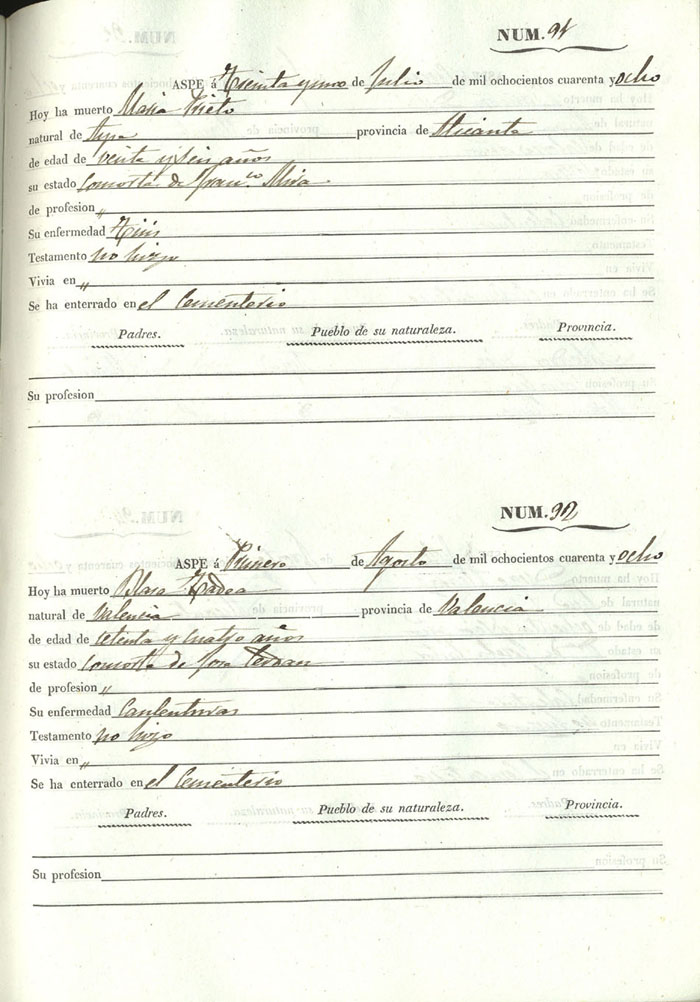 NUM. 91
ASPE á Treinta y uno de Julio de mil ochocientos cuarenta y ocho
Hoy ha muerto Maria Prieto
natural de Aspe provincia de Alicante
de edad de venta y seis años
su estado Consorte de Franco. Mira
de profesion "
Su enfermedad Tisis
Testamento no hizo
Vivia en "
Se ha enterrado en el Cementerio
Padres. Pueblo de su naturaleza. Provincia.
Su profesion
NUM. 92
ASPE á Primero de Agosto de mil ochocientos cuarenta y ocho
Hoy ha muerto Blasa
natural de Valencia provincia de Valencia
de edad de setenta y cuatro años
su estado Consorte de Jose
de profesion "
Su enfermedad Calenturas
Testamento no hizo
Vivia en "
Se ha enterrado en el Cementerio
Padres. Pueblo de su naturaleza. Provincia.
Su profesion